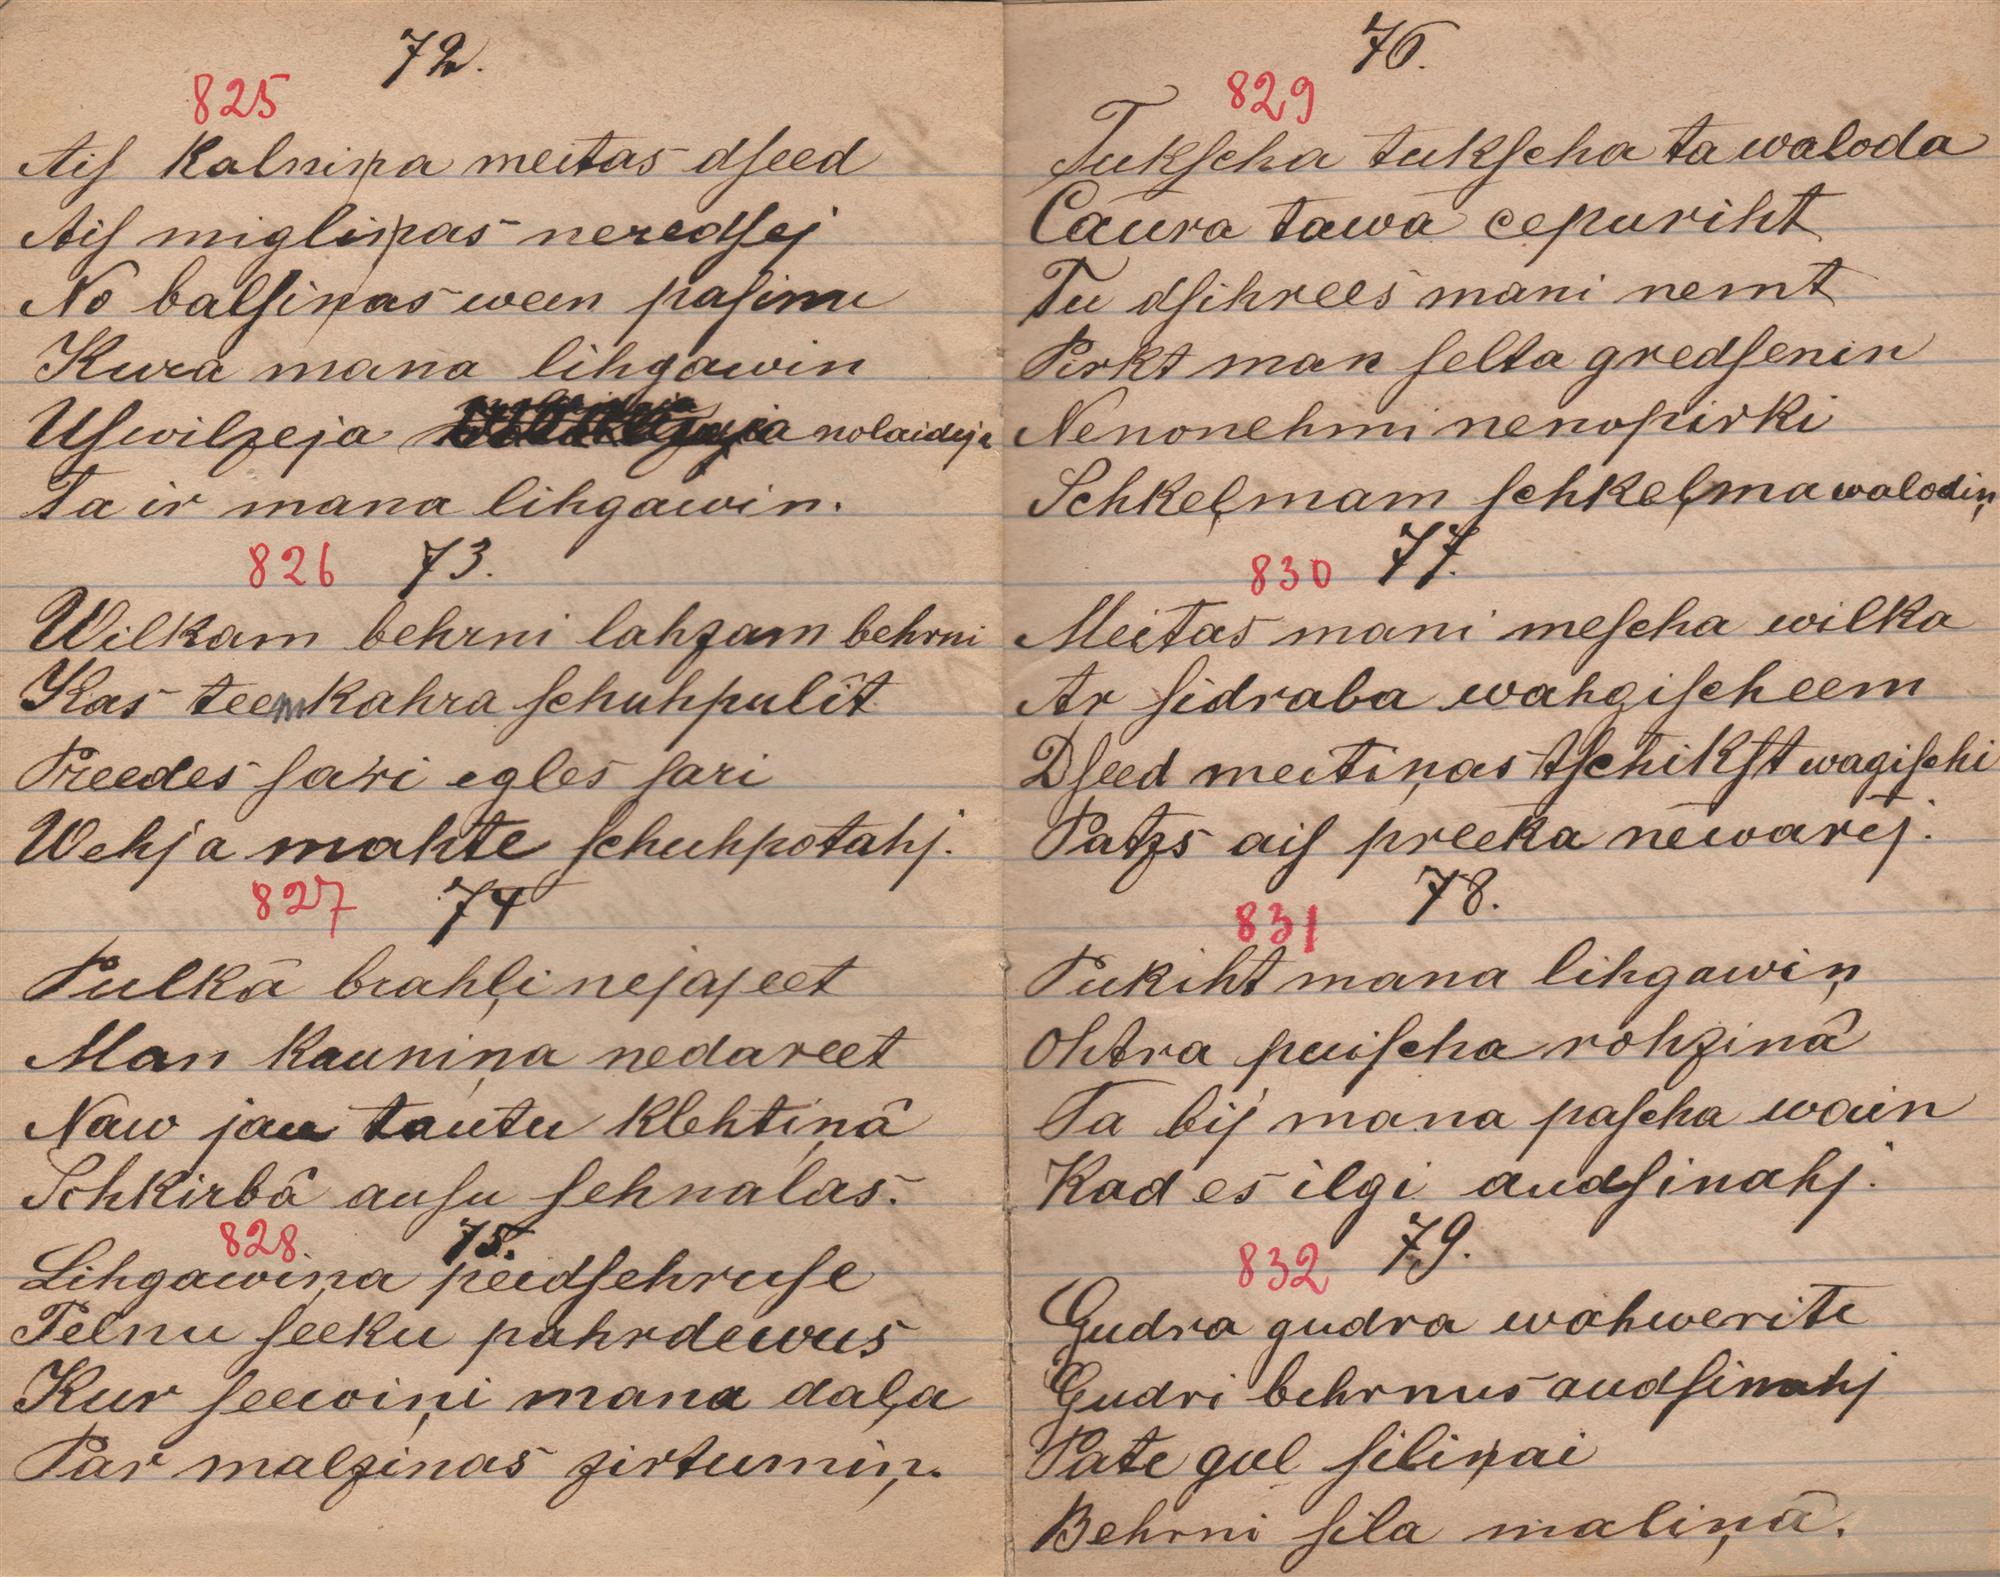 72.
825
Ais kalniņa meitas dseed
Ais migliņas neredsej
No balsiņas ween pasinu
Kura mana lihgawin
Uswilzeja nolaideja
Ta ir mana lihgawin.
826 73.
Wilkam behrni lahzam behrni
Kas teem kahra schuhpulît
Preedes sari egles sari
Wehja mahte schuhpotahj.
827 74
Pulkâ brahļi nejajeet
Man kauniņa nedareet
Naw jau tautu klehtiņâ
Schkirbâ ausu sehnalas.
828. 75.
Lihgawiņa peedsehruse
Pelnu seeku pahrdewus
Kur seewiņi mana daļa
Par malziņas zirtumiņ.
76.
829
Tukscha tukscha ta waloda
Caura tawa cepuriht
Tu dsihrees mani nemt
Pirkt man selta gredsenin
Nenonehmi nenopirki
Schkeļmam schkeļma walodiņ
830 77.
Meitas mani mescha wilka
Ar sidraba wahgischeem
Dseed meitiņas tschikst wagischi
Patzs ais preeka newarej.
78.
831
Pukiht mana lihgawiņ
Ohtra puischa rohziņâ
Ta bij mana pascha wain
Kad es ilgi audsinahj.
832 79.
Gudra gudra wahwerite
Gudri behrnus audsinahj
Pate gul siliņai
Behrni sila maliņâ.